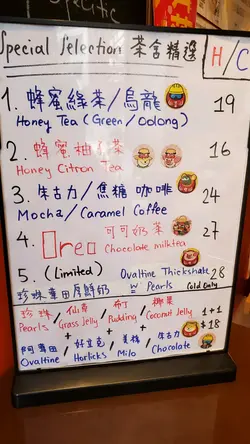 Special Selection 茶舍精選 H/C
1. 蜂蜜綠茶/烏龍 19
Honey Tea (Green/Oolong)
2. 蜂蜜柚子茶 16
Honey Citron Tea
3. 朱古力/焦糖 咖啡 24
Mocha/Caramel Coffee
4. Oreo 可可奶茶 27
Chocolate milktea
5. (Limited) Ovaltine Thickshake 28
珍珠 田厚鮮奶 w Pearls Cold Only
珍珠/仙草/布丁/椰果 1+1
Pearls/Grass Jelly/Pudding/Coconut Jelly $18
+ + +
阿華田/好立克/美祿/朱古力
Ovaltine/Horlicks/Milo/Chocolate